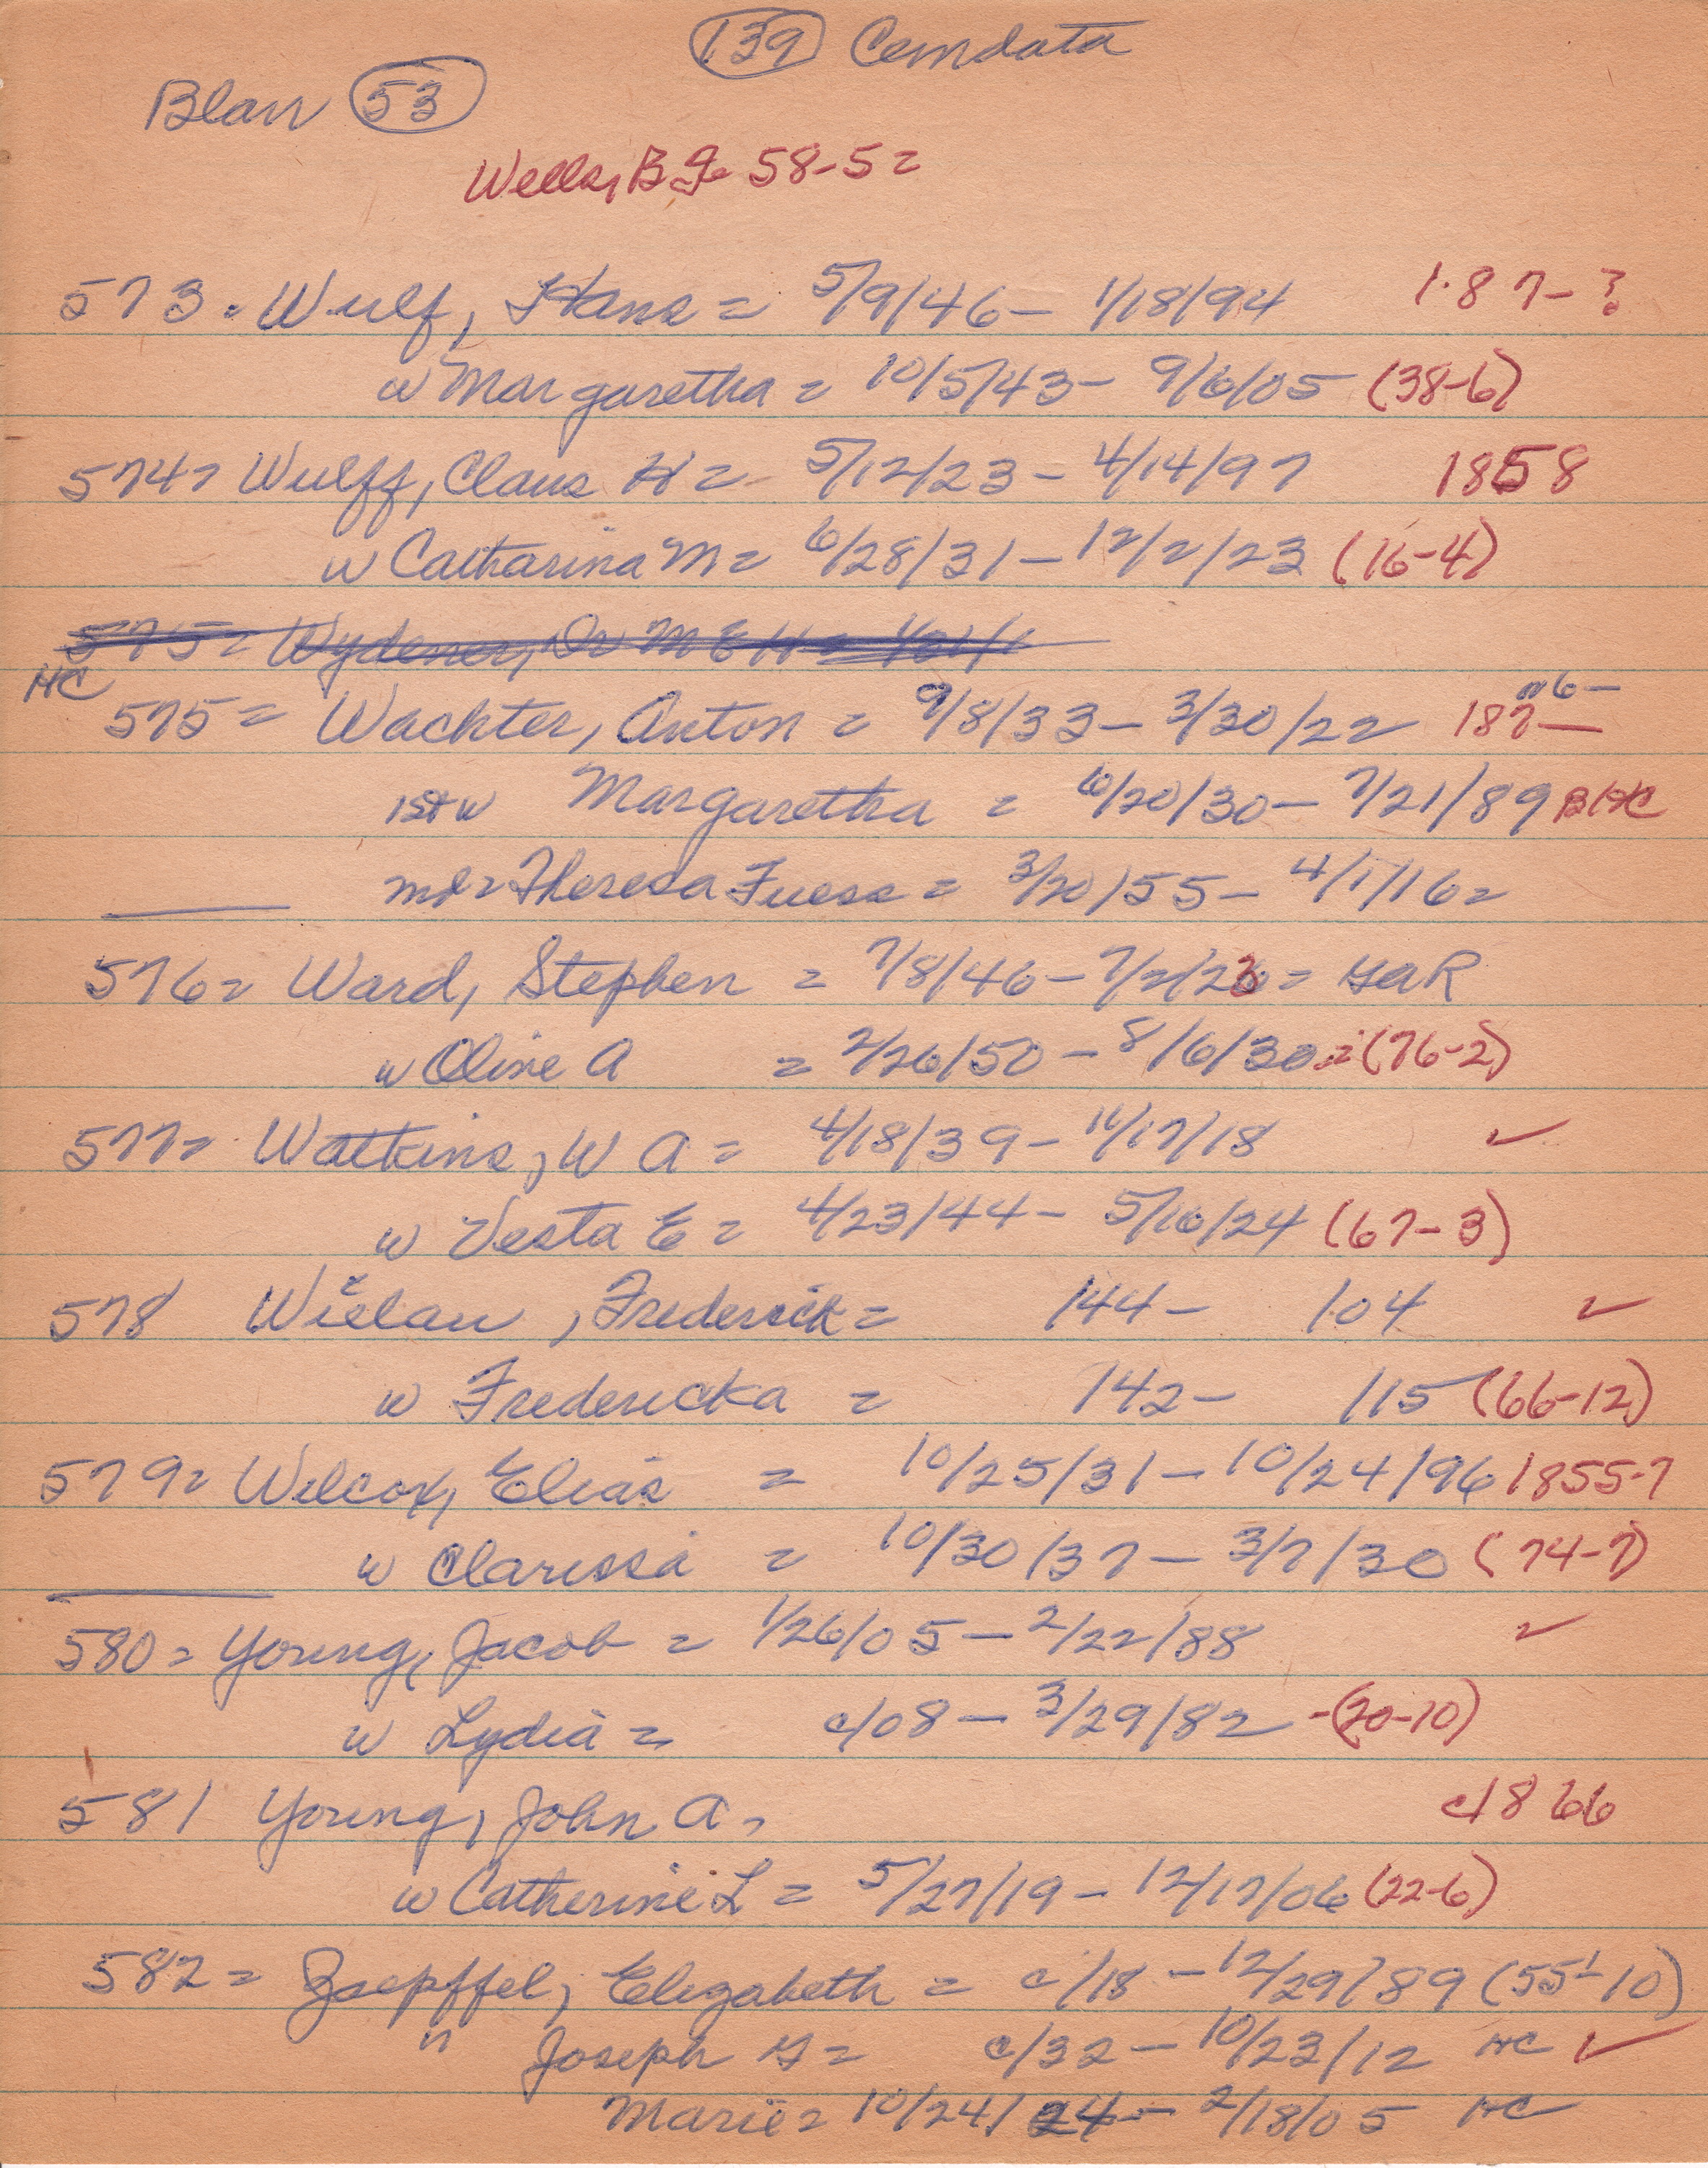 139 Cemdata
Blan 53
Wells, B J = 58-5 =
573 = Wulf, Hans = 5/9/46 - 1/18/94 187-?
w Margaretha = 10/5/43 - 9/6/05 (38-6)
574 = Wulff, Claus H = 5/12/23 - 4/14/97 1858
w Catharina M = 6/28/31 - 12/2/23 (16-4)
575 = Wydener, Dr M E H = 1/21/1
HC 575 = Wachter, Anton = 9/8/33 - 3/30/22 187- "6-
1st w Margaretha = 6/20/30 - 7/21/89 B HC
md = Theresa Fuess = 3/20/55 - 4/1/16 =
576 = Ward, Stephen = 7/8/46 - 7/2/23 = GaR
w Oline A = 2/26/50 - 8/6/30 = (76-2)
577 = Watkins, W A = 4/18/39 - 11/17/18 ✓
w Vesta E = 4/23/44 - 5/16/24 (67-3)
578 Wielau, Frederick = /44 - /04 ✓
w Fredericka = /42 - /15 (66-12)
579 = Wilcox, Elias = 10/25/31 - 10/24/96 1855-7
w Clarissa = 10/30/37 - 3/7/30 (74-7)
580 = Young, Jacob = 1/26/05 - 2/22/88 ✓
w Lydia = c/08 - 3/29/82 - (20-10)
581 Young, John A = c1866
w Catherine L = 5/27/19 - 12/17/06 (22-6)
582 = Zoepffel, Elizabeth = c/18 - 12/29/89 (55-10)
" Joseph G = c/32 - 10/23/12 HC ✓
Marie = 10/24/24 - 2/18/05 HC